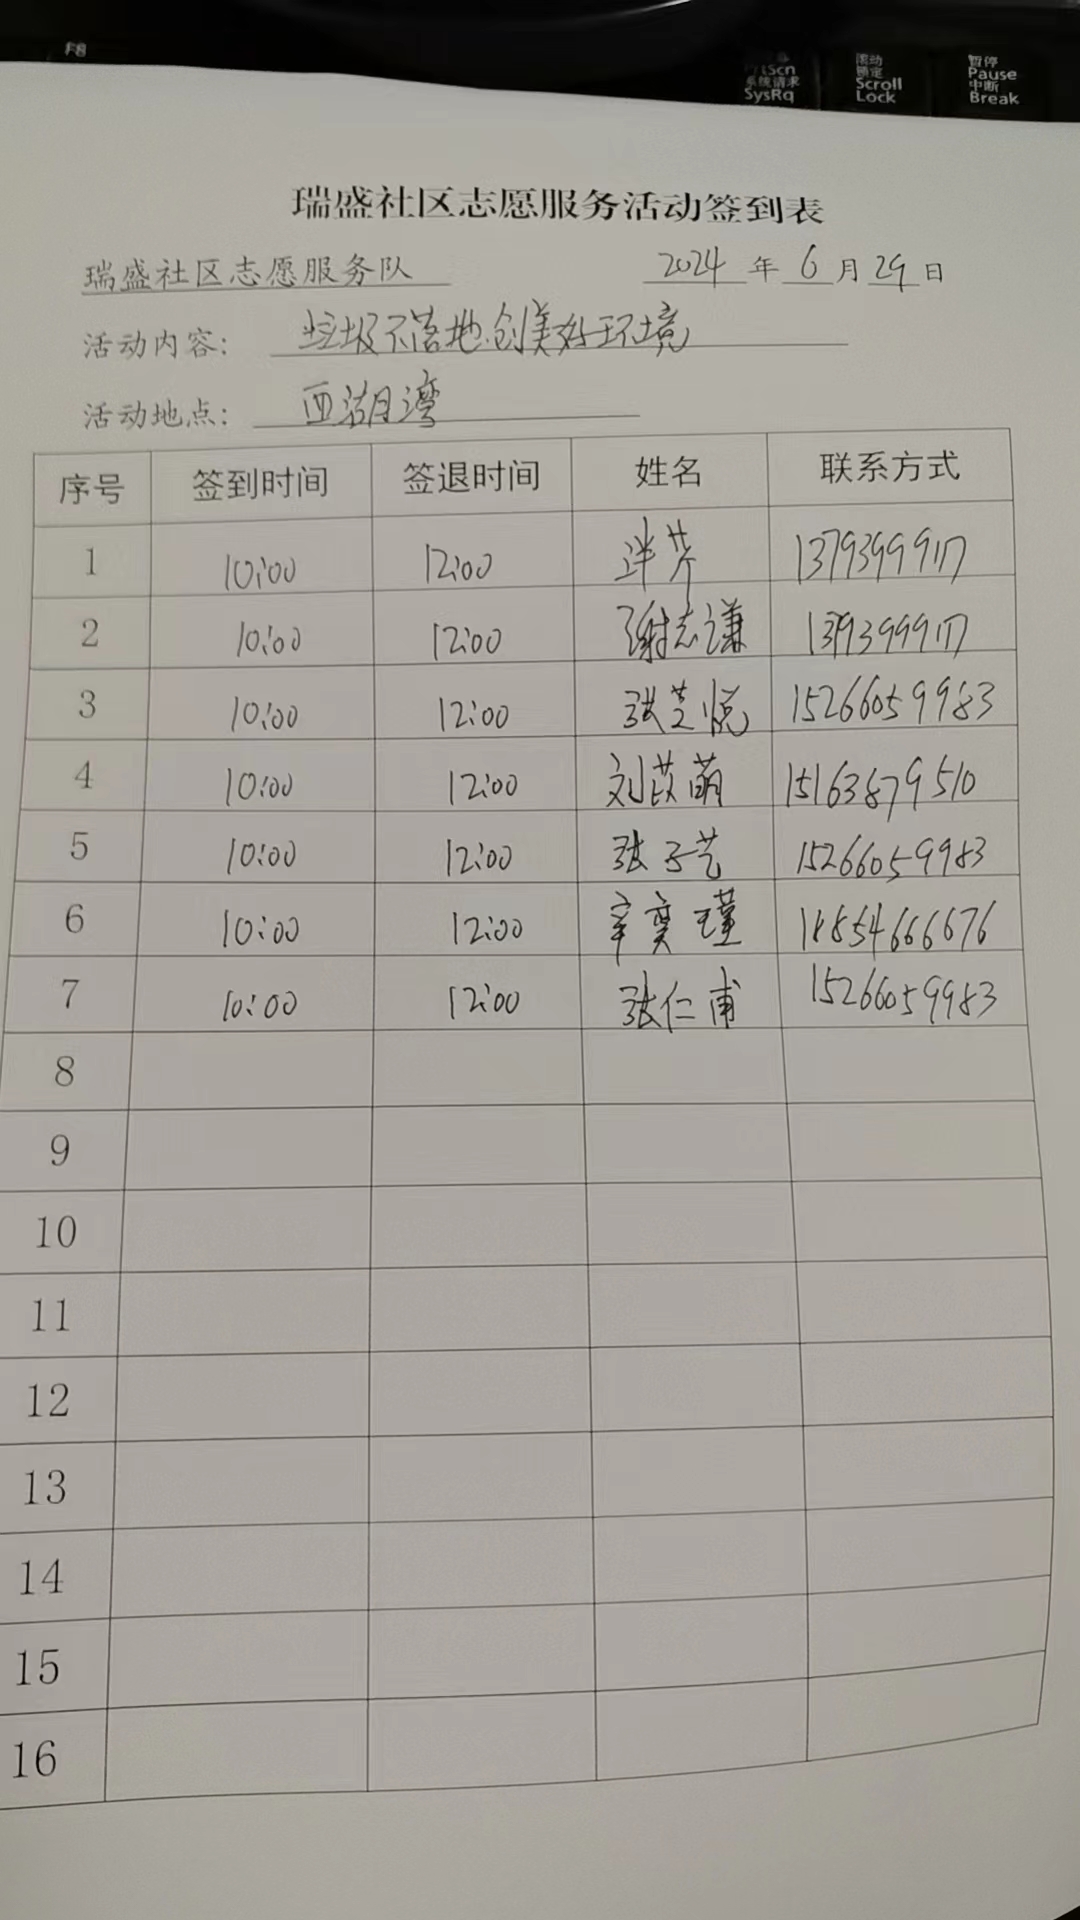 F8
系统请求
SysRq
滚动
锁定
Scroll
Lock
暂停
Pause
中断
Break
瑞盛社区志愿服务活动签到表
瑞盛社区志愿服务队 2024 年 6 月 29 日
活动内容: 垃圾不落地.创美好环境
活动地点: 西湖月湾
序号 签到时间 签退时间 姓名 联系方式
1 10:00 12:00
2 10:00 12:00 谢志谦
3 10:00 12:00 张芝悦 15266059983
4 10:00 12:00 刘苡萌 15163879510
5 10:00 12:00 张子艺 15266059983
6 10:00 12:00 18854666676
7 10:00 12:00 张仁甫 15266059983
8
9
10
11
12
13
14
15
16